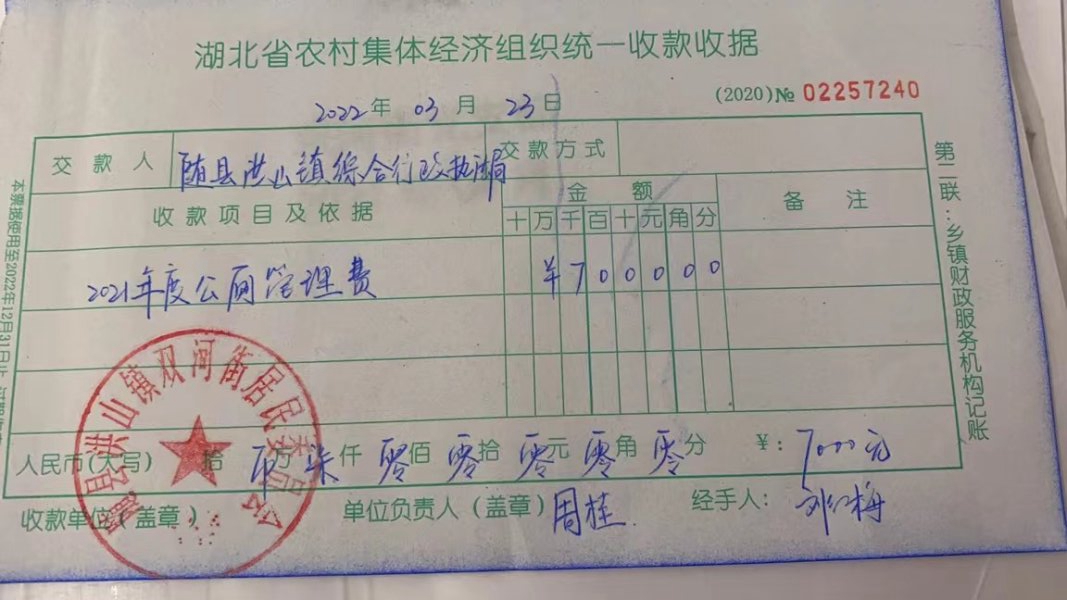 湖北省农村集体经济组织统一收款收据
2022年 03月 23日
(2020)№ 02257240
交款人 随县洪山镇综合行政执法局 交款方式
收款项目及依据 金额 备注
十万千百十元角分
2021年度公厕管理费 ¥700000
人民币(大写) 拾 万 柒仟 零佰 零拾 零元 零角 零分 ¥: 7000元
收款单位(盖章) 单位负责人(盖章) 周桂 经手人:
随县洪山镇双河街居民委员会
第二联:乡镇财政服务机构记账
本票据使用至2022年12月31日止